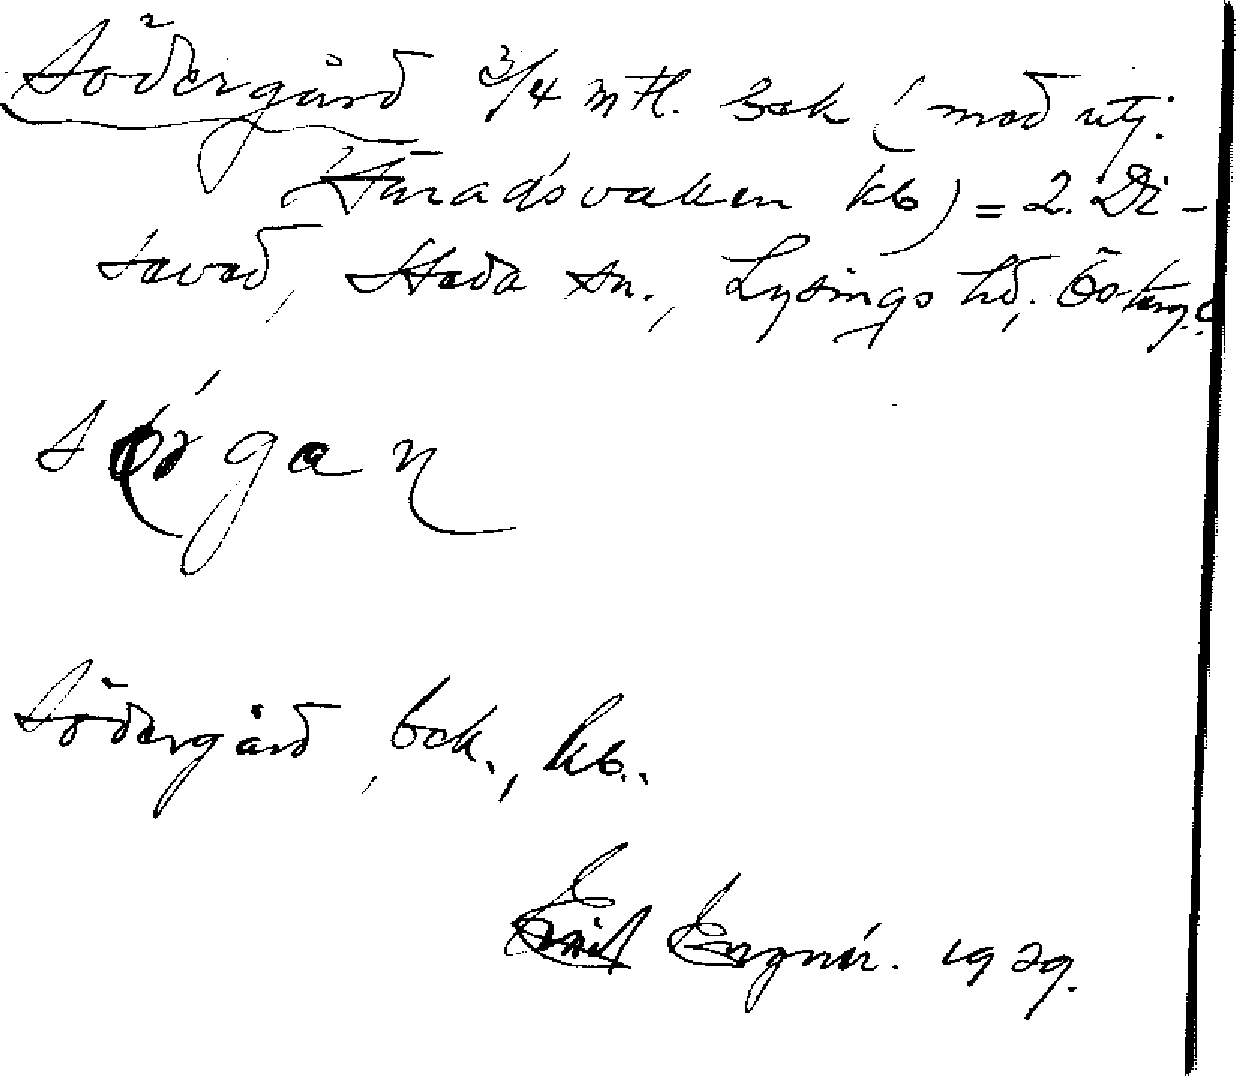 Södergård 3/4 mtl. bek (med utj.
Häradsvaken kb) = 2. Di-
savad, Heda sn., Lysings hd, Östergt.
sörgan
Södergård, bek., kb..
Engnér. 1929.